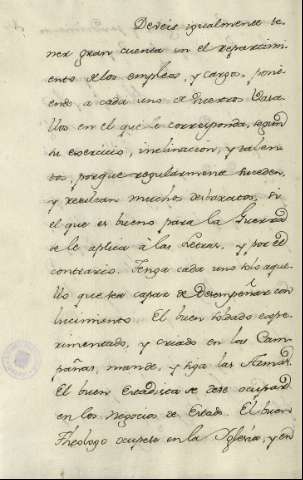 Deveis igualmente te-
ner gran cuenta en el repartimi-
ento de los empleos, y cargos, poni-
endo à cada uno de vuestros Vasa-
llos en el que le corresponda, segun
su exercicio, inclinacion, y talen-
tos, porque regularmente suceden,
y resultan muchos desbaratos, si
el que es bueno para la Guerra
se le aplica à las Letras, y por el
contrario. Tenga cada uno solo aque-
llo que sea capaz de desempeñar con
lucimiento. El buen soldado expe-
rimentado, y criado en las Cam-
pañas, mande, y siga las Armas.
El buen Estadista se debe ocupar
en los negocios de Estado. El buen
Theologo ocupese en la Yglesia, y en